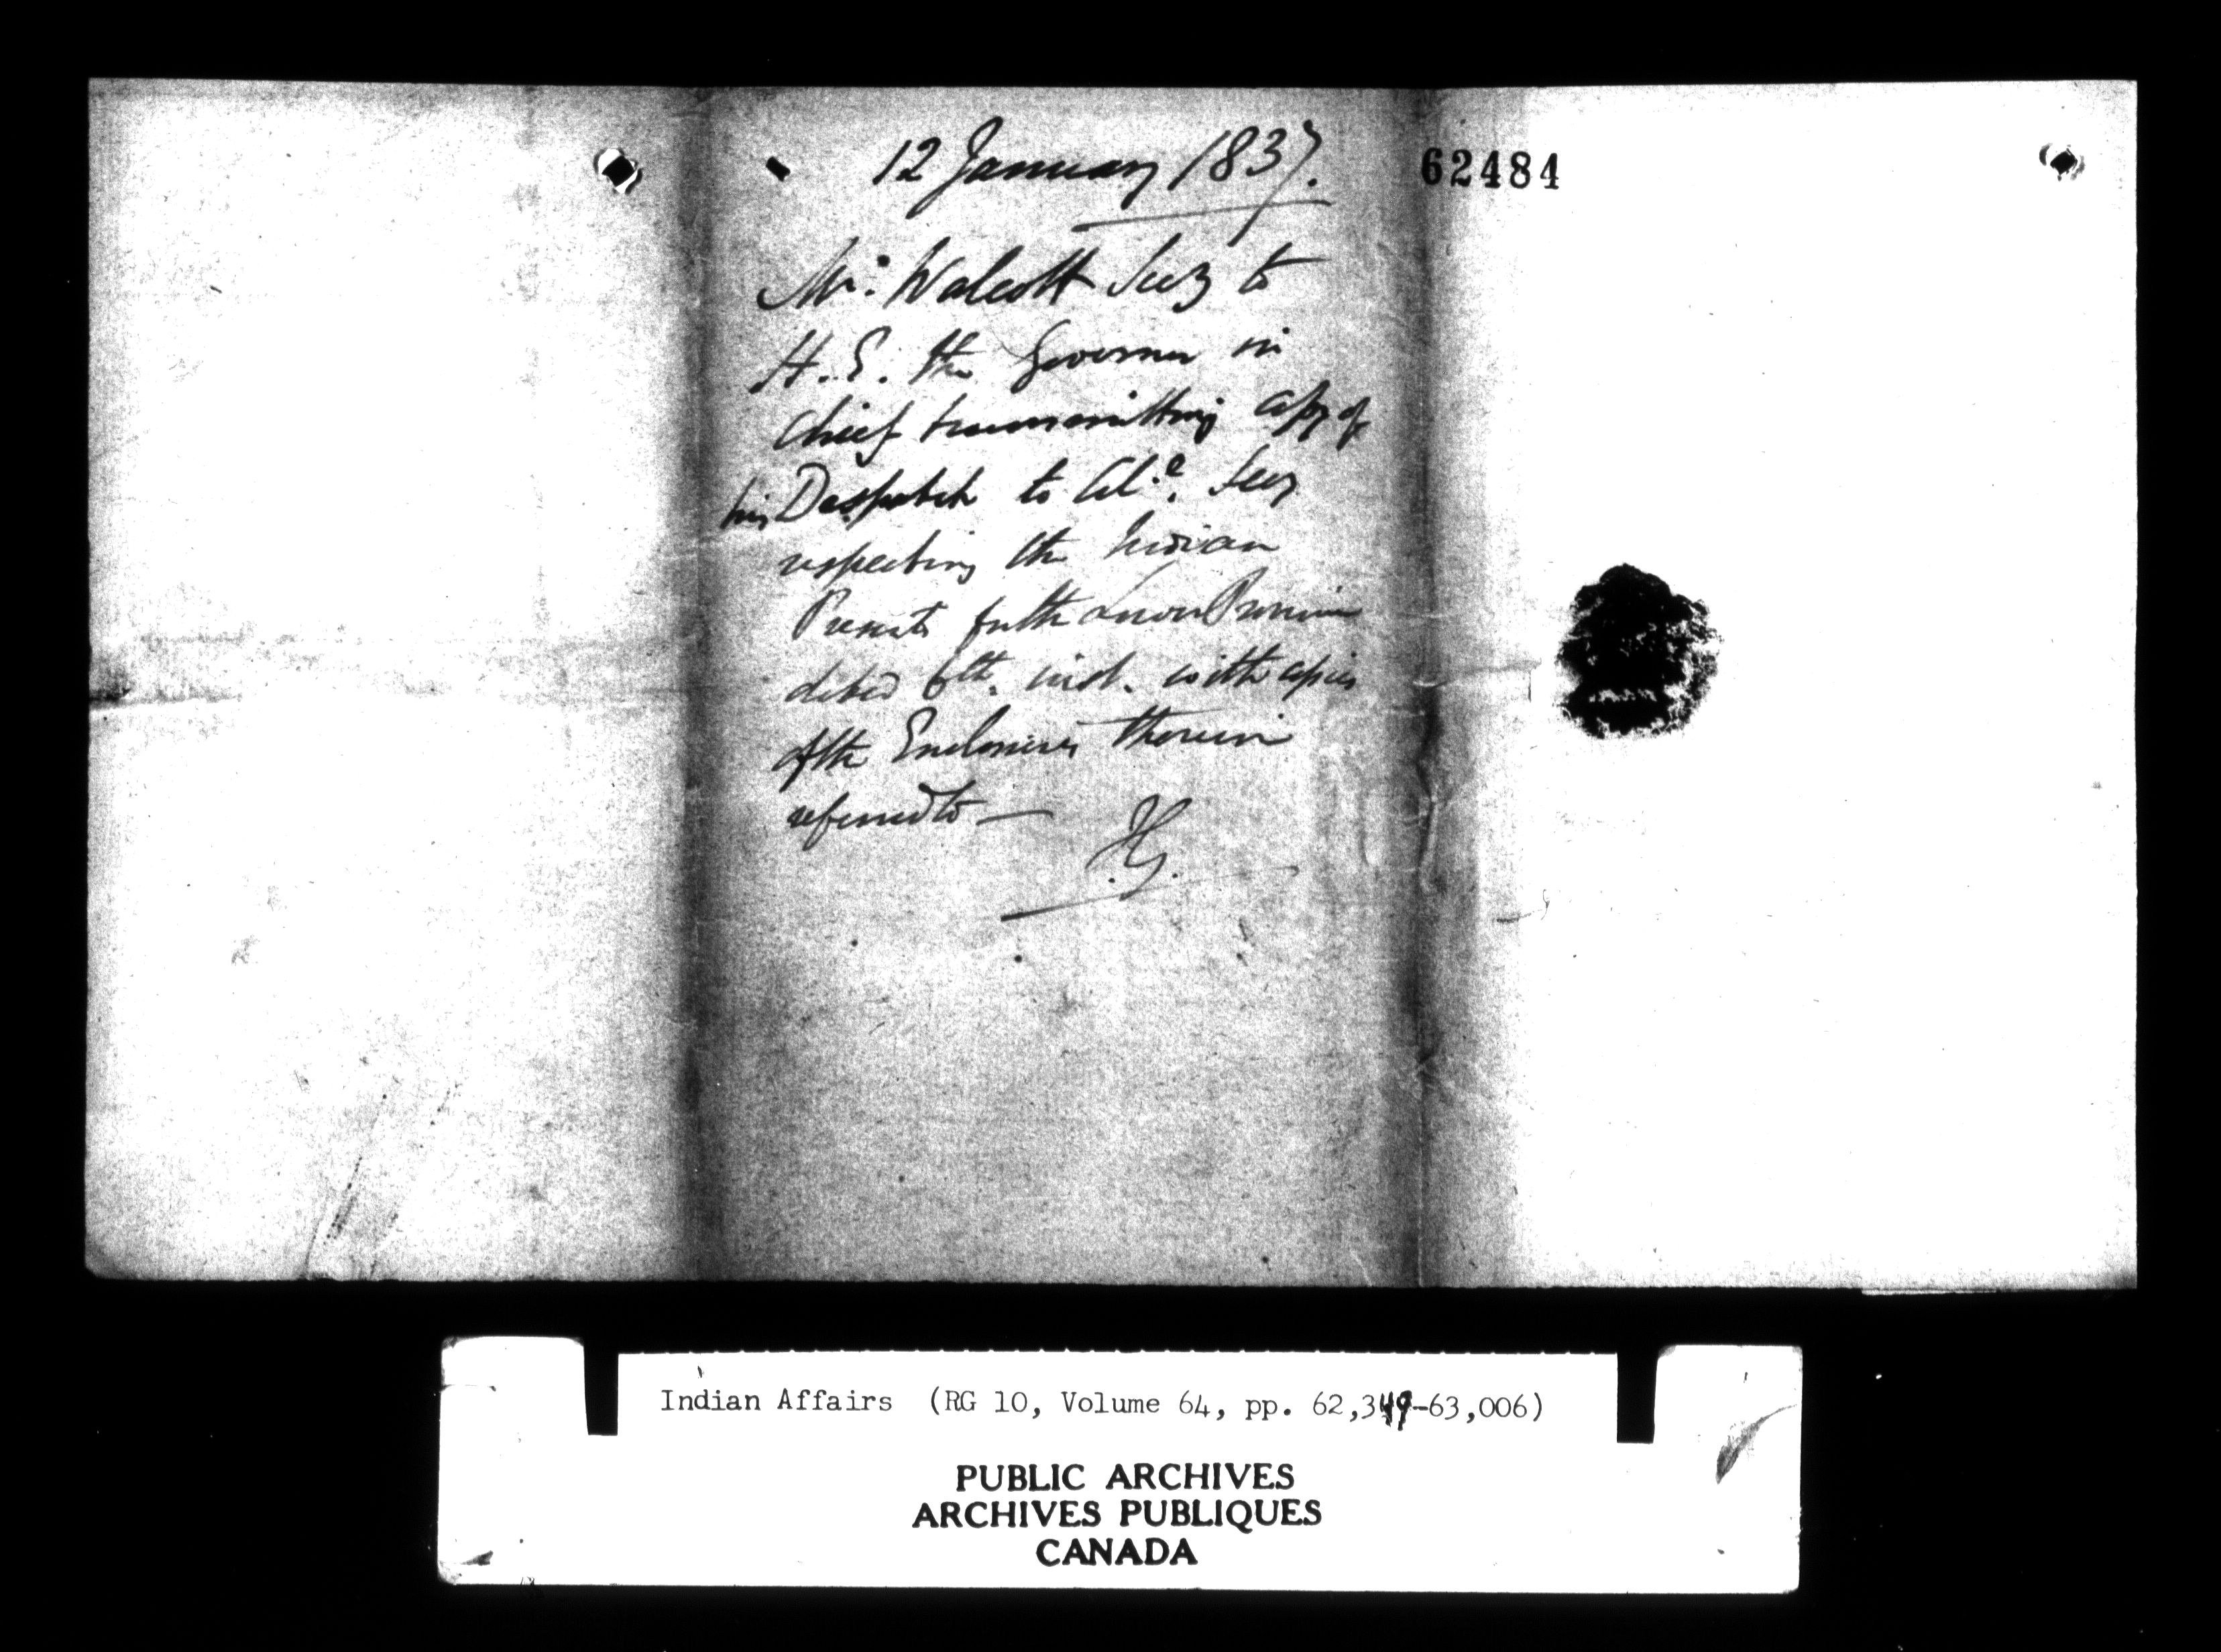 12 January 1837.
62484
Mr. Walcott Secy to
H. E. the Governor in
Chief transmitting copy of
his Despatch to Col.e Secy
respecting the Indian
Presents for the Lower Province
dated 6th. inst. with copies
of the Enclosures therein
referred to —
Indian Affairs (RG 10, Volume 64, pp. 62,349-63,006)
PUBLIC ARCHIVES
ARCHIVES PUBLIQUES
CANADA